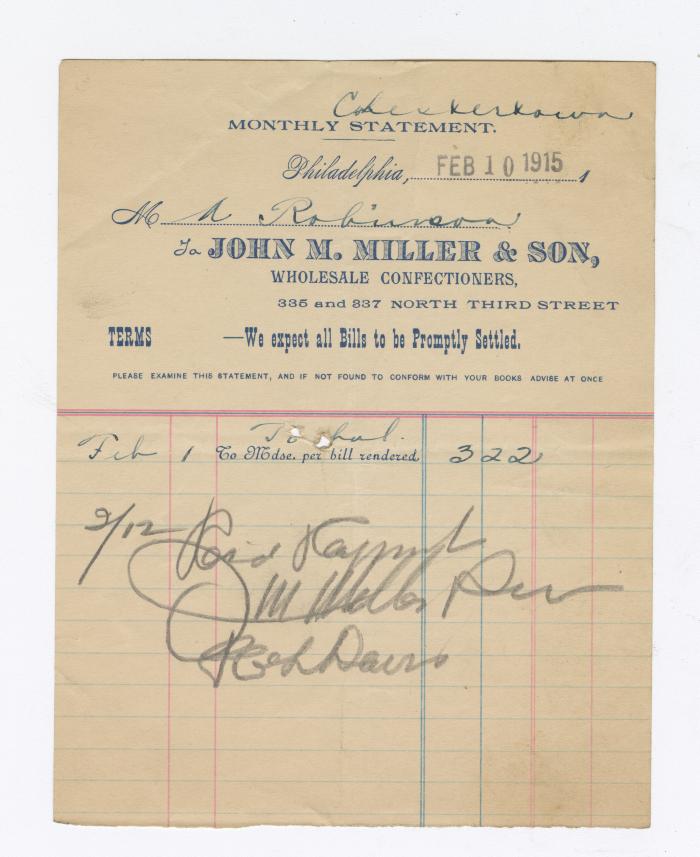 Chestertown
MONTHLY STATEMENT.
Philadelphia, FEB 10 1915 1
M A Robinson
To JOHN M. MILLER & SON,
WHOLESALE CONFECTIONERS,
335 and 337 NORTH THIRD STREET
TERMS —We expect all Bills to be Promptly Settled.
PLEASE EXAMINE THIS STATEMENT, AND IF NOT FOUND TO CONFORM WITH YOUR BOOKS ADVISE AT ONCE
To bal.
Feb 1 To Mdse. per bill rendered 3 22
2/12 Recd Payment
J M Miller & Son
Davis